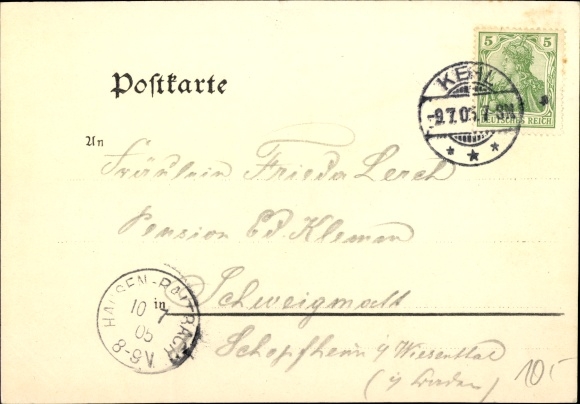 5 5
DEUTSCHES REICH
KEHL
9.7.05. 7-8N
Postkarte
An
Fräulein Frieda Lerch
Pension Ed. Kleman
in Schweigmatt
Schopfheim i/ Wiesenthal
(i/ Baden)
HAUSEN-RAITBACH
10 7
05
6-8 N
10.-